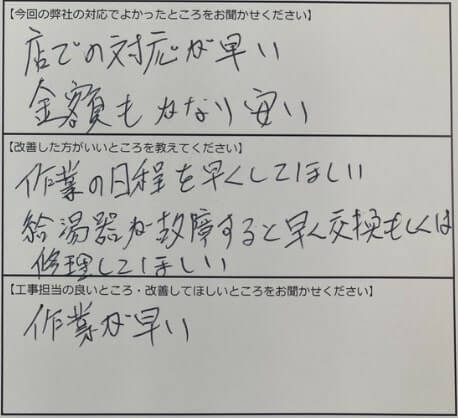 【今回の弊社の対応でよかったところをお聞かせください】
店での対応が早い
金額もかなり安い
【改善した方がいいところを教えてください】
作業の日程を早くしてほしい
給湯器が故障すると早く交換もしくは
修理してほしい
【工事担当の良いところ・改善してほしいところをお聞かせください】
作業が早い